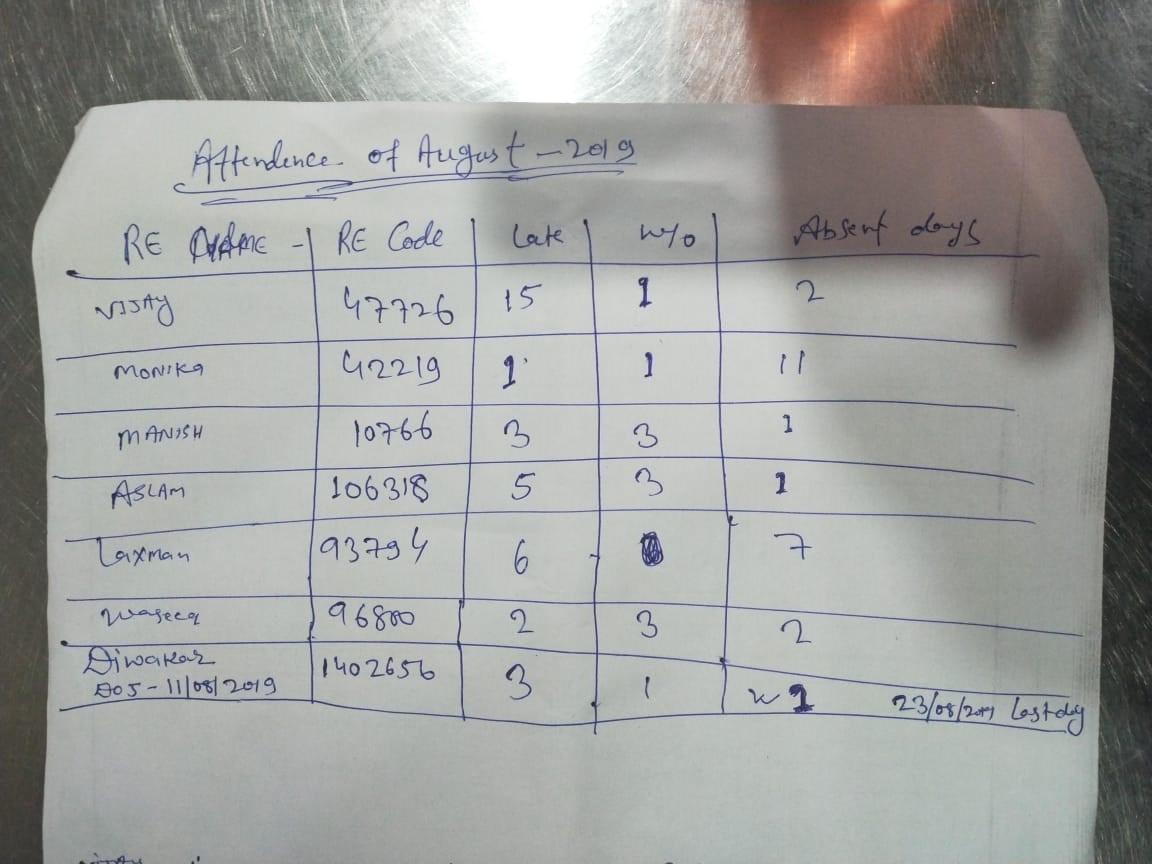 Attendence of August - 2019
RE NAME - RE Code Late w/o Absent days
VIJAY 47726 15 1 2
MONIKA 42219 1 1 11
MANISH 10766 3 3 1
ASLAM 106318 5 3 1
Laxman 93794 6 7
Waseeq 96800 2 3 2
Diwakar 1402656 3 1 1
DOJ - 11/08/2019 23/08/2019 Last day